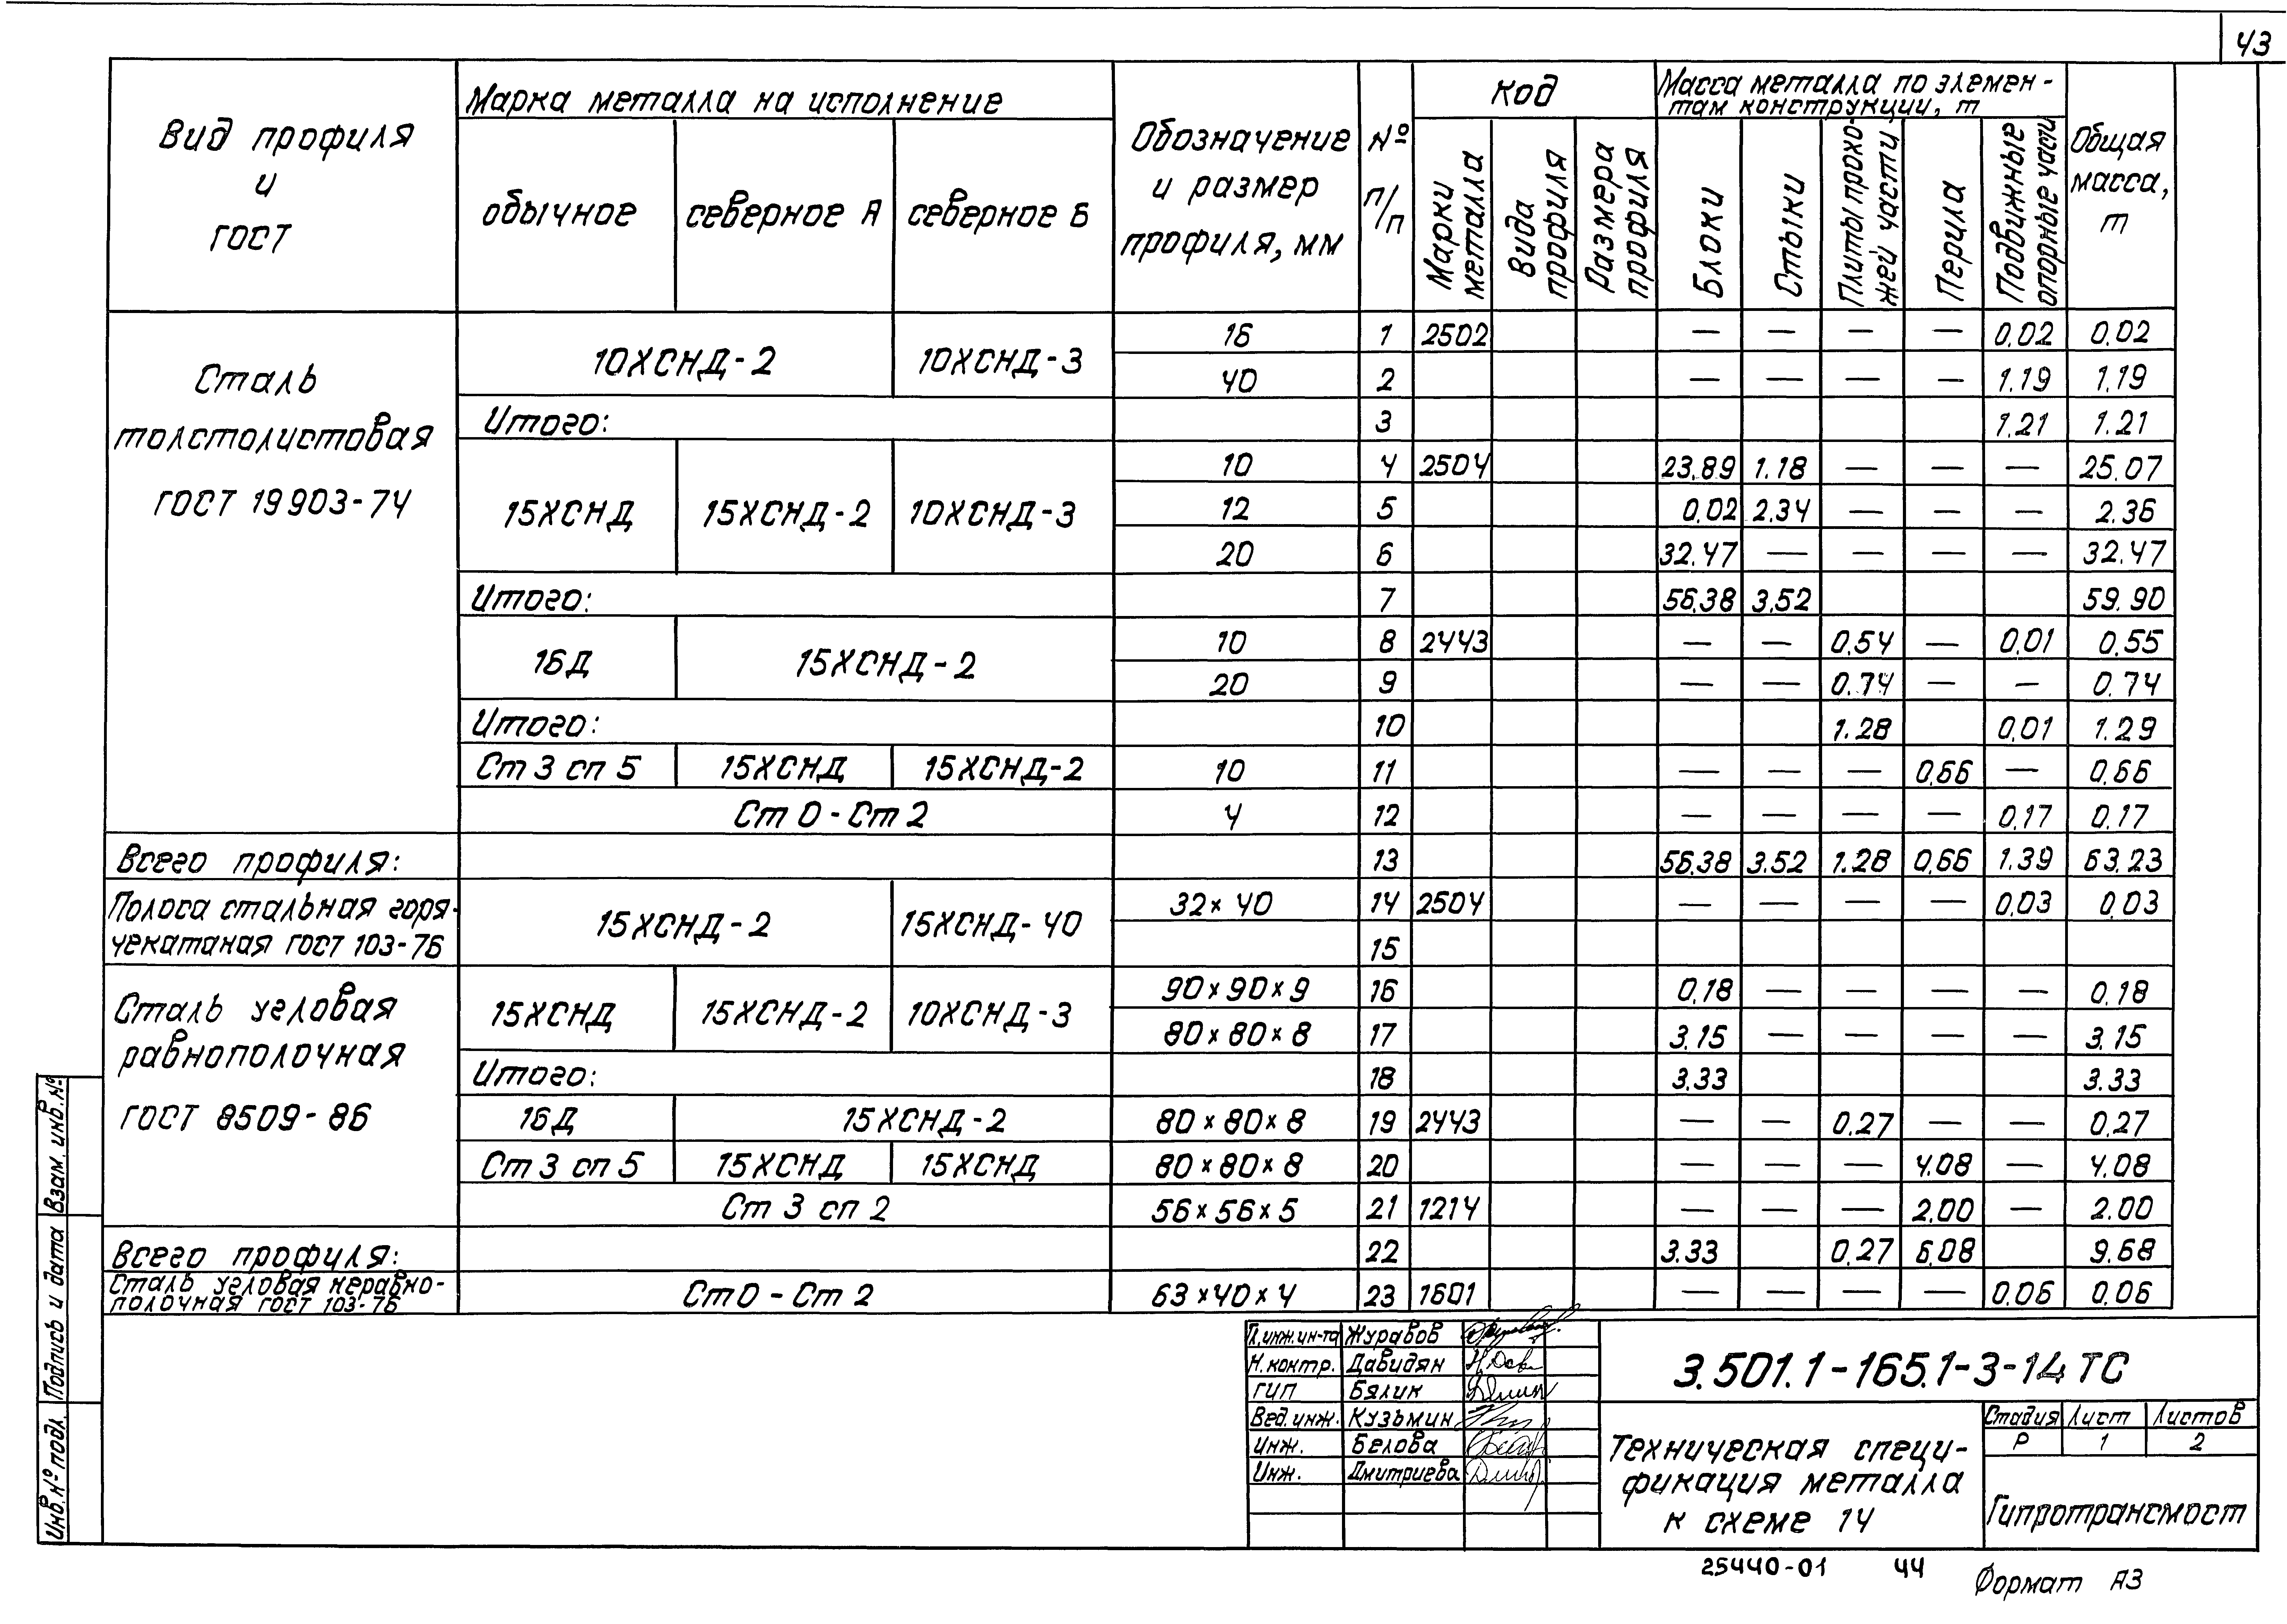 43
Вид профиля и ГОСТ
Марка металла на исполнение
обычное
северное А
северное Б
Обозначение и размер профиля, мм
№ п/п
Код
Марки металла
Вида профиля
Размера профиля
Масса металла по элемен-
там конструкции, т
Блоки
Стыки
Плиты прохо-
жей части
Перила
Подвижные опорные части
Общая масса, т
Сталь
толстолистовая
ГОСТ 19903-74
10ХСНД-2 10ХСНД-3
16 1 2502 — — — — 0.02 0.02
40 2 — — — — 1.19 1.19
Итого: 3 1.21 1.21
15ХСНД 15ХСНД-2 10ХСНД-3
10 4 2504 23.89 1.18 — — — 25.07
12 5 0.02 2.34 — — — 2.36
20 6 32.47 — — — — 32.47
Итого: 7 56.38 3.52 59.90
16Д 15ХСНД-2
10 8 2443 — — 0.54 — 0.01 0.55
20 9 — — 0.74 — — 0.74
Итого: 10 1.28 0.01 1.29
Ст 3 сп 5 15ХСНД 15ХСНД-2 10 11 — — — 0.66 — 0.66
Ст 0 - Ст 2 4 12 — — — — 0.17 0.17
Всего профиля: 13 56.38 3.52 1.28 0.66 1.39 63.23
Полоса стальная горя-
чекатаная ГОСТ 103-76
15ХСНД-2 15ХСНД-40
32×40 14 2504 — — — — 0.03 0.03
15
Сталь угловая
равнополочная
ГОСТ 8509-86
15ХСНД 15ХСНД-2 10ХСНД-3
90×90×9 16 0.18 — — — — 0.18
80×80×8 17 3.15 — — — — 3.15
Итого: 18 3.33 3.33
16Д 15ХСНД-2 80×80×8 19 2443 — — 0.27 — — 0.27
Ст 3 сп 5 15ХСНД 15ХСНД 80×80×8 20 — — — 4.08 — 4.08
Ст 3 сп 2 56×56×5 21 1214 — — — 2.00 — 2.00
Всего профиля: 22 3.33 0.27 6.08 9.68
Сталь угловая неравно-
полочная ГОСТ 103-76
Ст0 - Ст 2 63×40×4 23 1601 — — — — 0.06 0.06
Взам. инв. №
Подпись и дата
Инв. № подл.
Гл. инж. ин-та Журавов
Н. контр. Давидян
ГИП Бялик
Вед. инж. Кузьмин
Инж. Белова
Инж. Дмитриева
3.501.1-165.1-3-14 ТС
Техническая специ-
фикация металла
к схеме 14
Стадия Лист Листов
Р 1 2
Гипротрансмост
25440-01 44
Формат А3